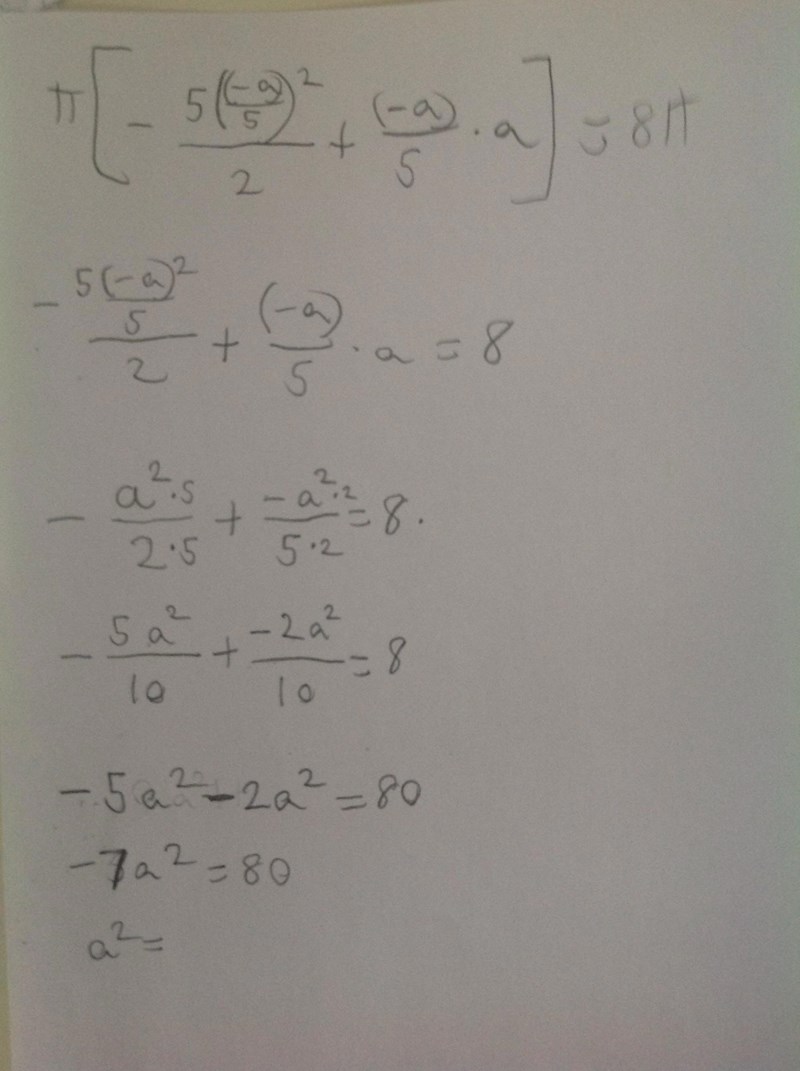 π[-5((-a)/5)²/2 + (-a)/5 · a] = 8π
-(5(-a)²/5)/2 + (-a)/5 · a = 8
-(a²·5)/(2·5) + (-a²·2)/(5·2) = 8.
-5a²/10 + -2a²/10 = 8
-5a² - 2a² = 80
-7a² = 80
a² =